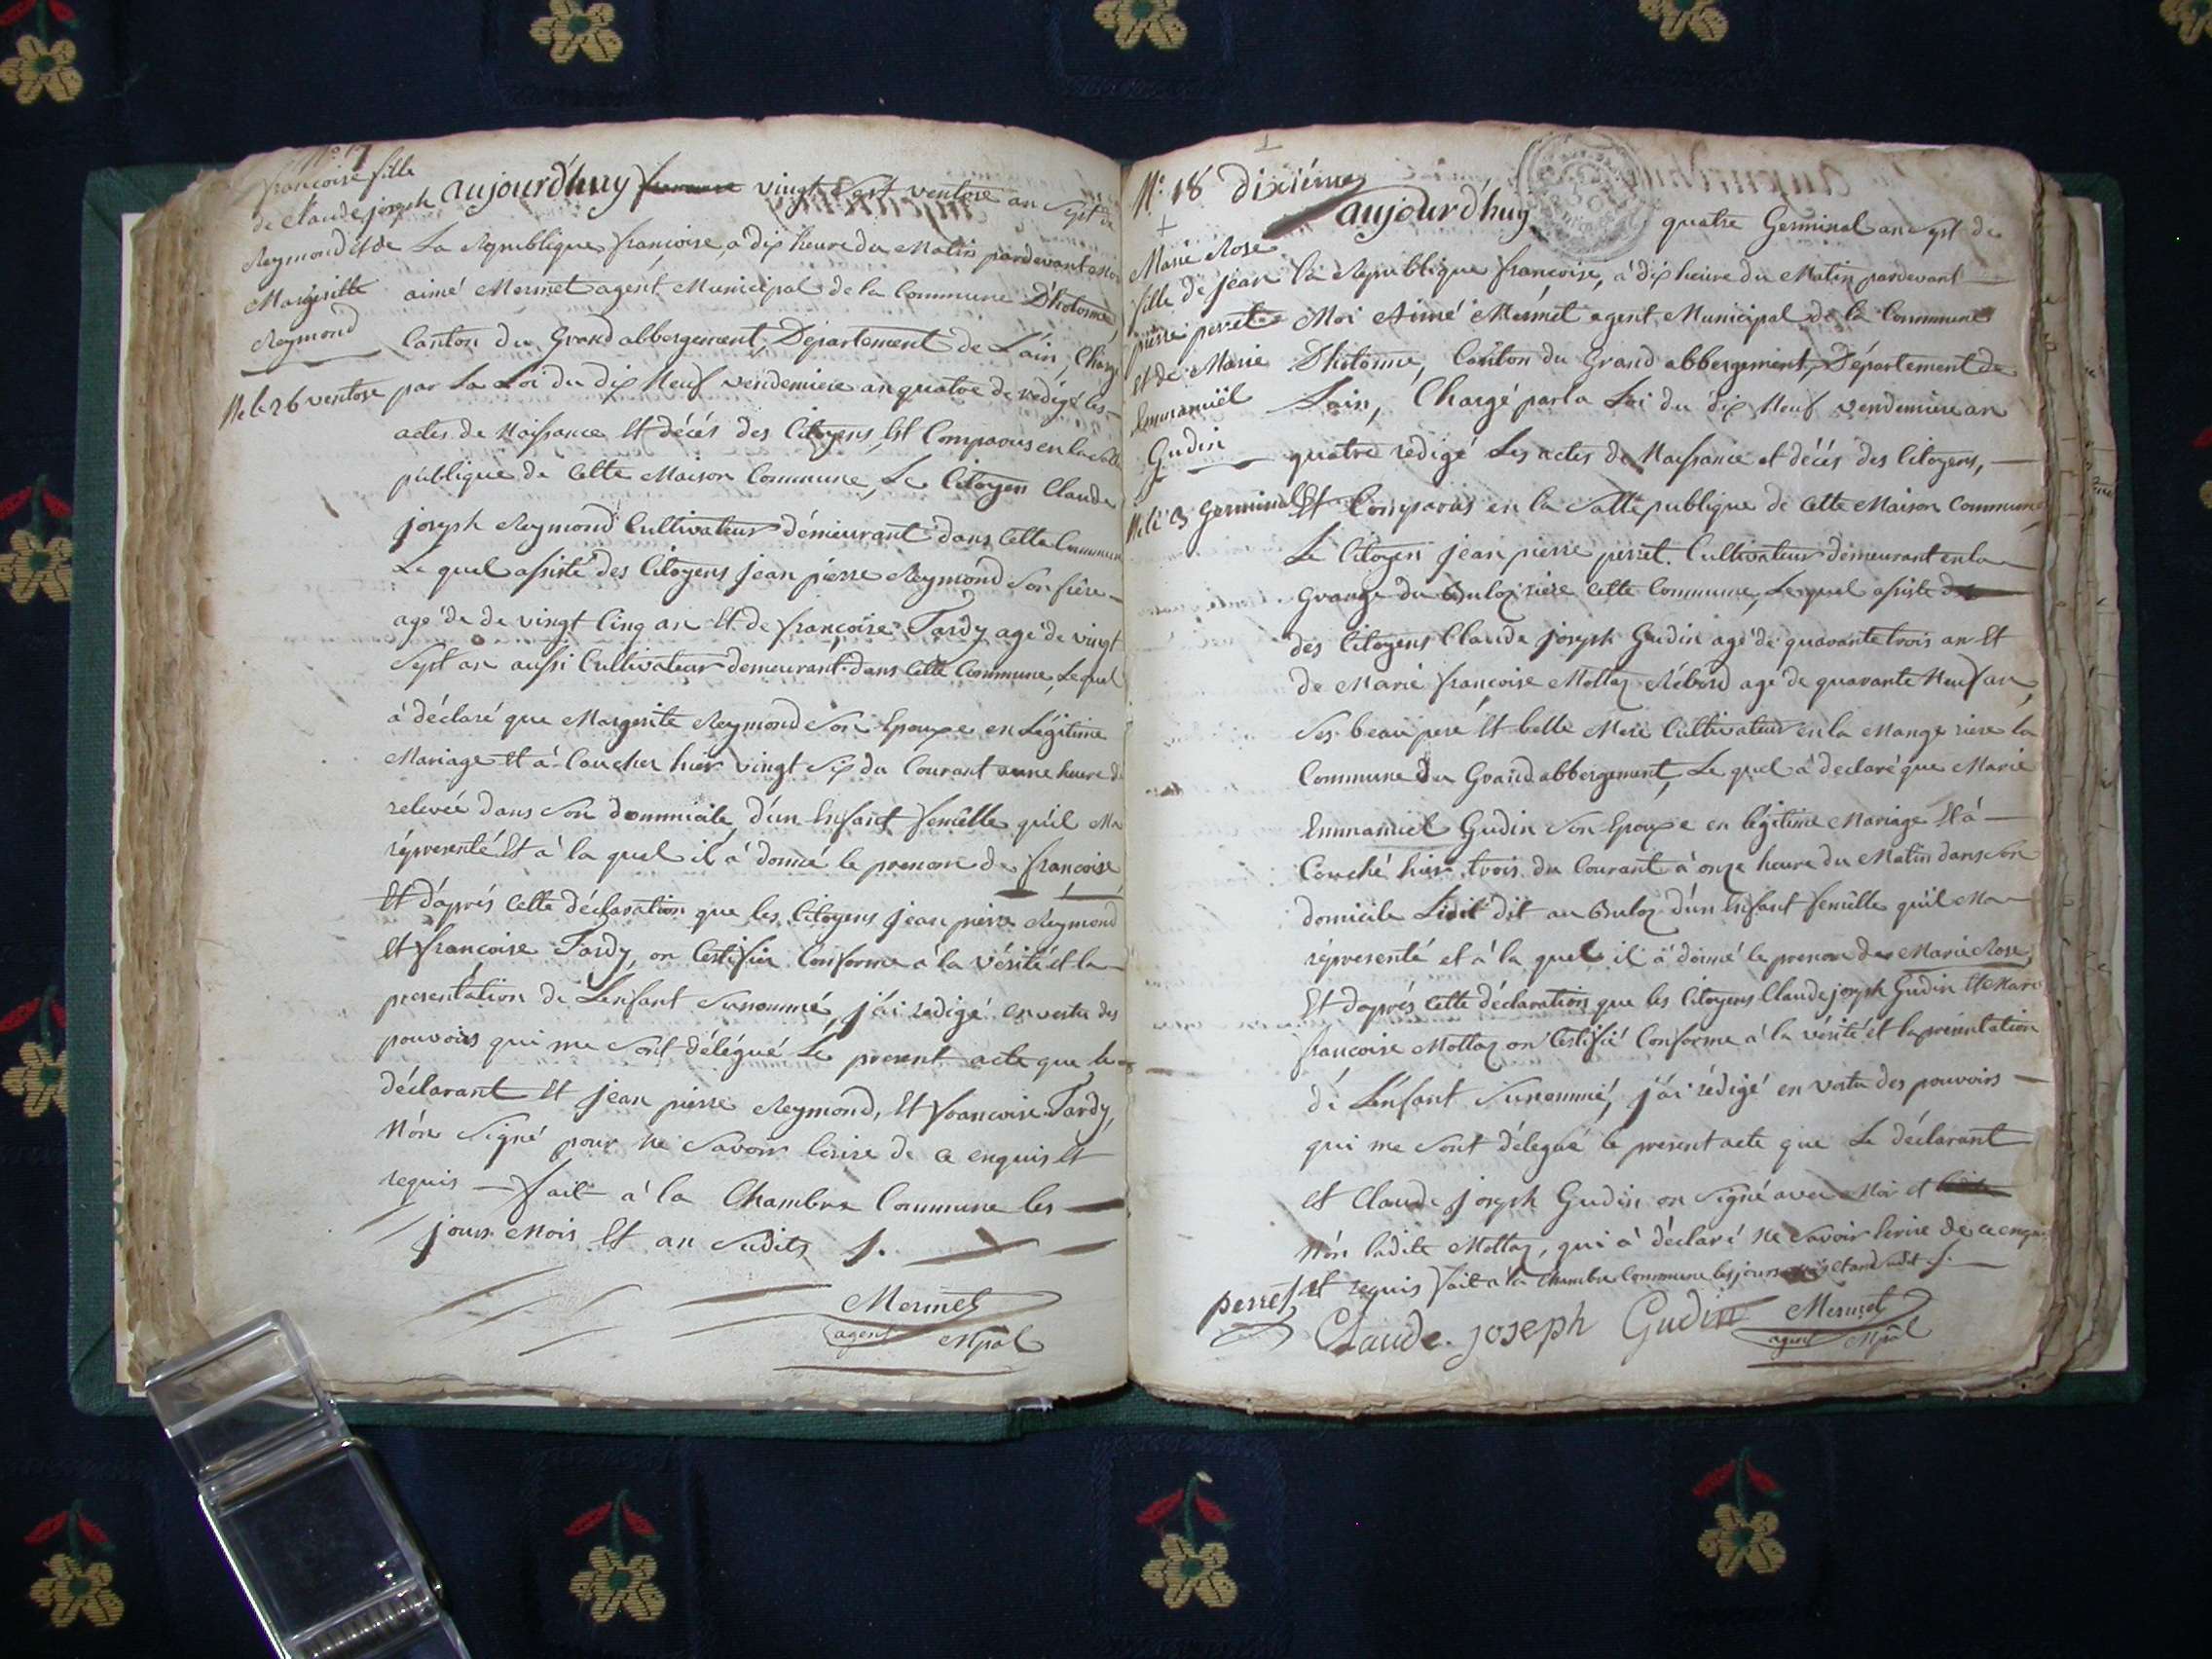 N.° 17
françoise fille
de claude joseph
Reymond et de
Margeritte
Reymond
Né le 26 ventose
aujourd'huy vingt sept ventose an sept de
La Republique françoise, a dix heure du Matin pardevant moi
aimé Mermet agent Municipal de la Commune D'hotonne,
Canton du Grand abbergement, Département de L'ain, Chargé
par La Loi du dix Neuf vendemiere an quatre de redigé les
actes de Naissance Et décés des Citoyens, Est Comparus en la Salle
publique de Cette Maison Commune, Le Citoyen Claude
joseph Reymond Cultivateur démeurant dans Cette Commune
Le quel assisté des Citoyens jean pierre Reymond Son frère
agé de de vingt Cinq an Et de françoise Tardy agé de vingt
Sept an aussi Cultivateur demeurant dans Cette Commune, Lequel
à déclaré que Margerite Reymond Son Epouse en Légitime
Mariage Et à Coucher hier vingt Six du Courant a une heure de
relevée dans Son dommicile, d'un Enfant femelle qu'il Ma
réprésenté Et à la quel il à donné le prenom de françoise
Et d'aprés Cette déclaration que les Citoyens jean pierre Reymond
Et françoise Tardy, on Certifier Conforme a la Vérité et la
presentation de L'enfant Sunommé, j'ai redigé en vertu des
pouvoirs qui me Sont délégué Le present acte que le
déclarant Et jean pierre Reymond, Et françoise Tardy,
N'on Signé pour ne Savoir Ecrire de ce enquis Et
requis — fait à la Chambre Commune les
jours Mois Et an Sudits
Mermet
agent Mpal
N.° 18 dixiéme
Marie Rose
fille de jean
pierre perret
Et de Marie
Emmanuël
Gudin
Né le 3 Germinal
aujourd'huy quatre Germinal an sept de
la Republique françoise, à dix heure du Matin pardevant
Moi Aimé Mermet agent Municipal de la Commune
D'hotonne, Canton du Grand abbergement, Département de
Lain, Chargé par la Loi du dix Neuf vendemiere an
quatre redigé Les actes de Naissance et décés des Citoyens,
Est Comparus en la Salle publique de Cette Maison Commune
Le Citoyen jean pierre perret Cultivateur démeurant en la
Grange du Buloz riere Cette Commune, Lequel assisté
des Citoyens Claude joseph Gudin agé de quarante trois an Et
de Marie françoise Mottaz Rébord agé de quarante Neuf an
Ses beau pere Et belle Mere Cultivateur en la Mange riere la
Commune du Grand abbergement, Le quel à declaré que Marie
Emmanuel Gudin Son Epouse en légitime Mariage Et à
Couché hier trois du Courant à onze heure du Matin dans Son
domicile dit au Buloz d'un Enfant femelle qu'il Ma
réprésenté et à la quel il à donné le prenom de Marie Rose,
Et d'aprés Cette déclaration que les Citoyens Claude joseph Gudin Et Marie
françoise Mottaz on Certifié Conforme à la vérité et la présentation
de L'enfant Sunommé, j'ai rédigé en vertu des pouvoirs
qui me Sont délegué le present acte que Le déclarant
et Claude joseph Gudin on Signé avec Moi et
N'on ladite Mottaz, qui à déclaré ne Savoir Ecrire de ce enquis
et requis fait a la Chambre Commune les jours mois et and sudit
perret Claude joseph Gudin Mermet
agent Mpal